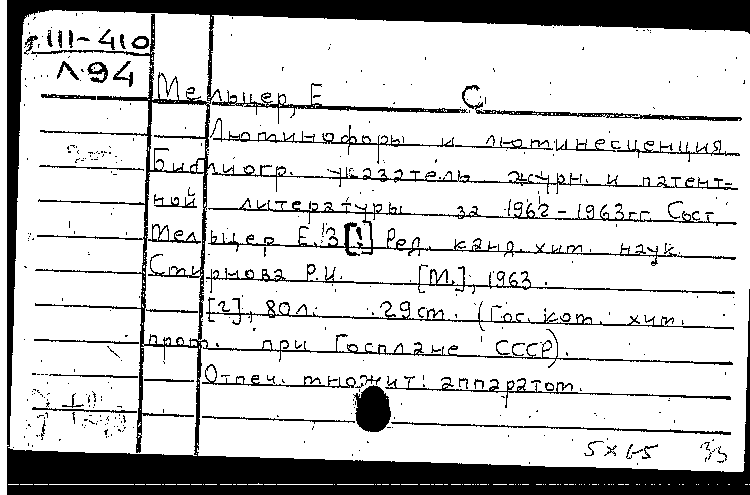 III-410
Л94
Мельцер, Е С
Люминофоры и люминесценция.
Библиогр. указатель журн. и патент-
ной литературы за 1962-1963гг. Сост.
Мельцер Е.З [!] Ред. канд. хим. наук
Смирнова Р.И. [М.], 1963.
[2], 80л. 29см. (Гос. ком. хим.
пром. при Госплане СССР).
Отпеч. множит. аппаратом.